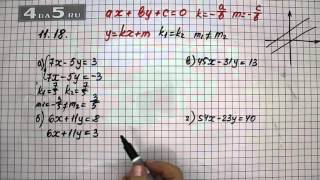 4 ДА 5.RU
ax + by + c = 0 k = -a/b m = -c/b
11.18. y = kx + m k₁ = k₂ m₁ ≠ m₂
а) {7x - 5y = 3
7x - 5y = -3
k₁ = 7/5 k₂ = 7/5
m₁ = -3/5 ≠ m₂ = 3/5
б) 6x + 11y = 8
6x + 11y = 3
в) 45x - 31y = 13
г) 54x - 23y = 40